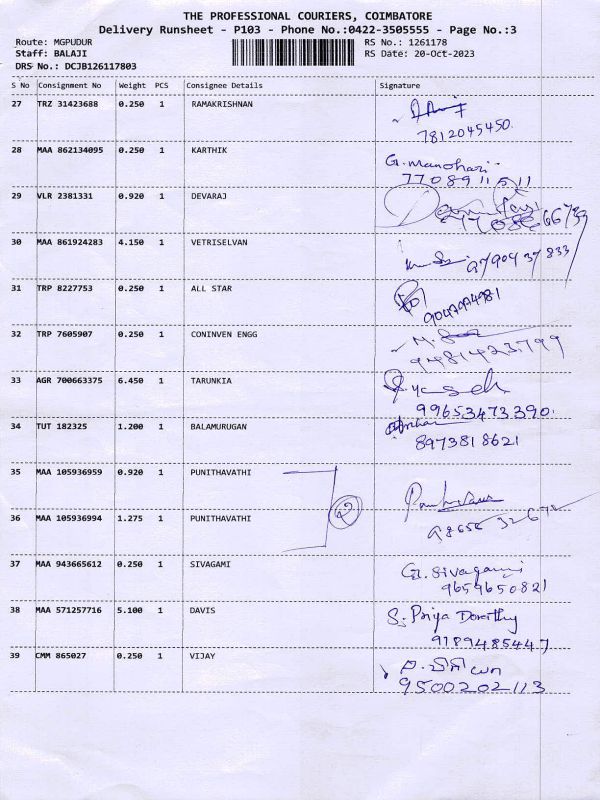 THE PROFESSIONAL COURIERS, COIMBATORE
Delivery Runsheet - P103 - Phone No.:0422-3505555 - Page No.:3
Route: MGPUDUR RS No.: 1261178
Staff: BALAJI RS Date: 20-Oct-2023
DRS No.: DCJB126117803
S No Consignment No Weight PCS Consignee Details Signature
27 TRZ 31423688 0.250 1 RAMAKRISHNAN
7812045450
28 MAA 862134095 0.250 1 KARTHIK
G. Manohari
7708911511
29 VLR 2381331 0.920 1 DEVARAJ
30 MAA 861924283 4.150 1 VETRISELVAN
9790437833
31 TRP 8227753 0.250 1 ALL STAR
32 TRP 7605907 0.250 1 CONINVEN ENGG
9481423799
33 AGR 700663375 6.450 1 TARUNKIA
99653473390
34 TUT 182325 1.200 1 BALAMURUGAN
8973818621
35 MAA 105936959 0.920 1 PUNITHAVATHI
2
36 MAA 105936994 1.275 1 PUNITHAVATHI
37 MAA 943665612 0.250 1 SIVAGAMI
G. Sivagami
9654650821
38 MAA 571257716 5.100 1 DAVIS
S. Priya Dorathy
9189485447
39 CMM 865027 0.250 1 VIJAY
9500202113